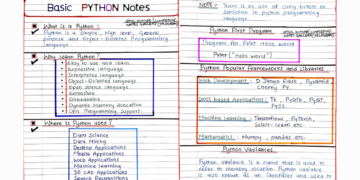 Basic PYTHON Notes
What is a Python?
Python is a simple, high level, General
purpose and Object-Oriented Programming
language.
Why Learn Python?
Easy to use and Learn
Expressive Language
Interpreted Language
Object-Oriented Language
Open Source Language
Extensible
Embeddable
Dynamic Memory Allocation
GUI Programming Support
Where is Python used?
Data Science
Data Mining
Desktop Applications
Mobile Applications
Web Applications
Machine Learning
3D CAD Applications
Speech Recognition
Note: There is no use of curly braces or
semicolon in python programming
language.
Python First Program
Program for Print "Hello World"
Print("Hello World")
Python Popular Frameworks and Libraries
Web Development: Django Flask, Pyramid
Cherry Py.
based Applications: Tk, PyGtk, PyQt,
Machine Learning: Tensorflow, PyTorch,
Scikit-learn etc.
Mathematics: Numpy, pandas etc.
Python Variables
Python Variable is a name that is used to
refer to memory location. Python variable
is also known as an identifier and used to